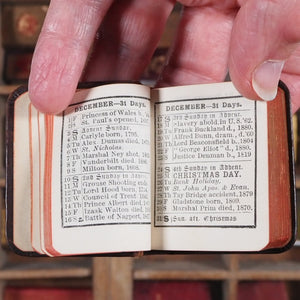 DECEMBER—31 Days.
Princess of Wales b.
St. Paul's opened,
S Advent Sunday.
Carlyle born, 1795.
Tu Alex. Dumas died,
W St. Nicholas
Th Marshal Ney shot.
F Vanderbilt died.
S Milton born, 1608.
S 2nd Sunday in Advent
M Grouse Shooting ends
Tu Lord Hood born,
W Council of Trent
Th Prince Albert died,
F Izaak Walton died,
S Battle of
DECEMBER—31 Days.
S 3rd Sunday in Advent
Slavery abolsh in U.S.
Tu Frank Buckland d., 1880
W Alfred Bunn, dram.,
Th Lord Beaconsfield b., 1804
F "George Eliot" d., 1880
S Justice Denman b., 1819
S 4th Sunday in Advent
M CHRISTMAS DAY.
Tu Bank Holiday.
W St. John Apos. & Evan.
Th Tay Bridge accident, 1879
F Gladstone born, 1809
S Marshal Prim died, 1870
S Sun. aft. Christmas